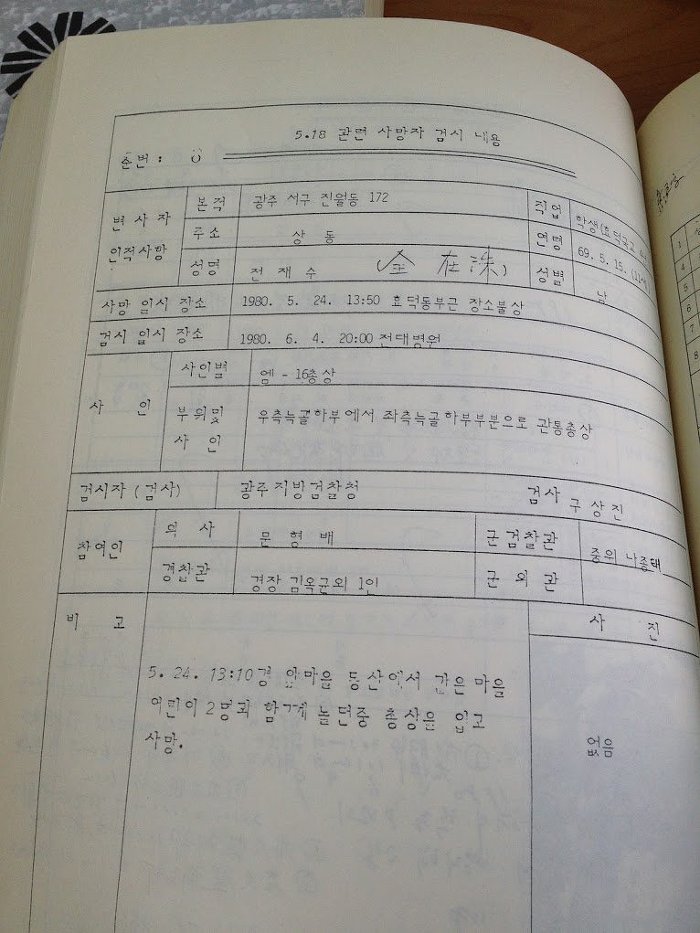 5.18 관련 사망자 검시 내용
순번 :
변사자 인적사항
본적 광주 서구 진월동 172
직업 학생(효덕국교
주소 상 동
연령 69. 5. 15.
성명 전 재 수 ( 全 在 洙 )
성별 남
사망 일시 장소 1980. 5. 24. 13:50 효덕동부근 장소불상
검시 일시 장소 1980. 6. 4. 20:00 전대병원
사 인
사인별 엠 - 16총상
부위및 사 인 우측늑골하부에서 좌측늑골하부부분으로 관통총상
검시자 (검사) 광주지방검찰청 검사 구상진
참여인
의 사 문 형 배
군검찰관 중위
경찰관 경장 김옥군외 1인
군 의 관
비 고
사 진
5. 24. 13:10경 앞마을 동산에서 같은 마을
어린이 2명과 함께 놀던중 총상을 입고
사망.
없음